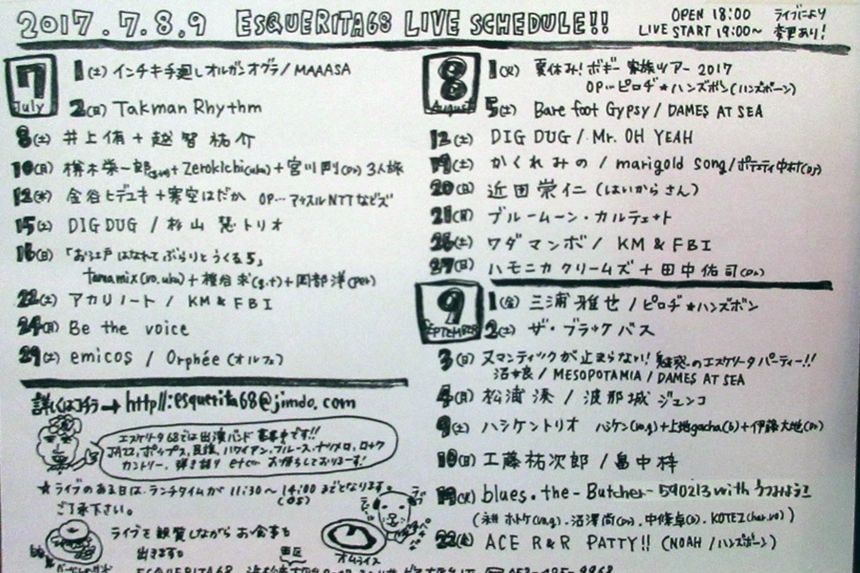 2017.7.8.9 ESQUERITA68 LIVE SCHEDULE!!
OPEN 18:00 ライブにより
LIVE START 19:00〜 変更あり!
7 July
1(土) インチキ手廻しオルガンオグラ/MAAASA
2(日) Takman Rhythm
8(土) 井上侑+越智祐介
10(月) 榊木栄一郎+Zerokichi(uku)+宮川剛(Ds) 3人旅
12(水) 金谷ヒデユキ+寒空はだか OP…
15(土) DIG DUG / 杉山慧トリオ
16(日) 「お江戸はなれてぶらりとうくる5」
tamamix(vo.uku)+椎谷求(g.t)+岡部洋(Per)
22(土) アカリノート / KM&FBI
24(月) Be the voice
29(土) emicos / Orphée(オルフェ)
詳しくはコチラ→http//:esquerita68@jimdo.com
エスケリータ68では出演バンド募集中です!!
JAZZ,ポップス,民族,ハワイアン,ブルース,ラテン,ロック
カントリー,弾き語り etc… お待ちしておりまーす!
★ライブのある日は、ランチタイムが11:30〜14:00までとなります。
(OS)
ご了承下さい。
ライブを観賞しながらお食事も
出来ます。
オムライス
8 August
1(火) 夏休み!ボギー家族ツアー2017
OP…ピロヂ★ハンズボン(ハンズボーン)
5(土) Bare foot Gypsy/DAMES AT SEA
12(土) DIG DUG/Mr. OH YEAH
19(土) かくれみの/marigold song/ポテティ中村(DJ)
20(日) 近田崇仁(はいからさん)
21(月) ブルームーン・カルテット
26(土) ワダマンボ/KM&FBI
27(日) ハモニカクリームズ+田中佑司(Ds)
9 September
1(金) 三浦雅也/ピロヂ★ハンズボン
2(土) ザ・ブラックバス
3(日) ヌマンティックが止まらない!魅惑のエスケリータパーティー!!
沼★良/MESOPOTAMIA/DAMES AT SEA
4(月) 松浦湊/波那城ジュンコ
9(土) ハシケントリオ ハシケン(vo.g)+上地gacha(b)+伊藤大地(Ds)
10(日) 工藤祐次郎/畠中梓
19(火) blues.the-Butcher-590213 with うつみようこ
(永井ホトケ(vo.g).沼澤尚(Ds).中條卓(b).KOTEZ(har.vo))
22(土) ACE R&R PATTY!!(NOAH/ハンズボーン)
ESQUERITA68